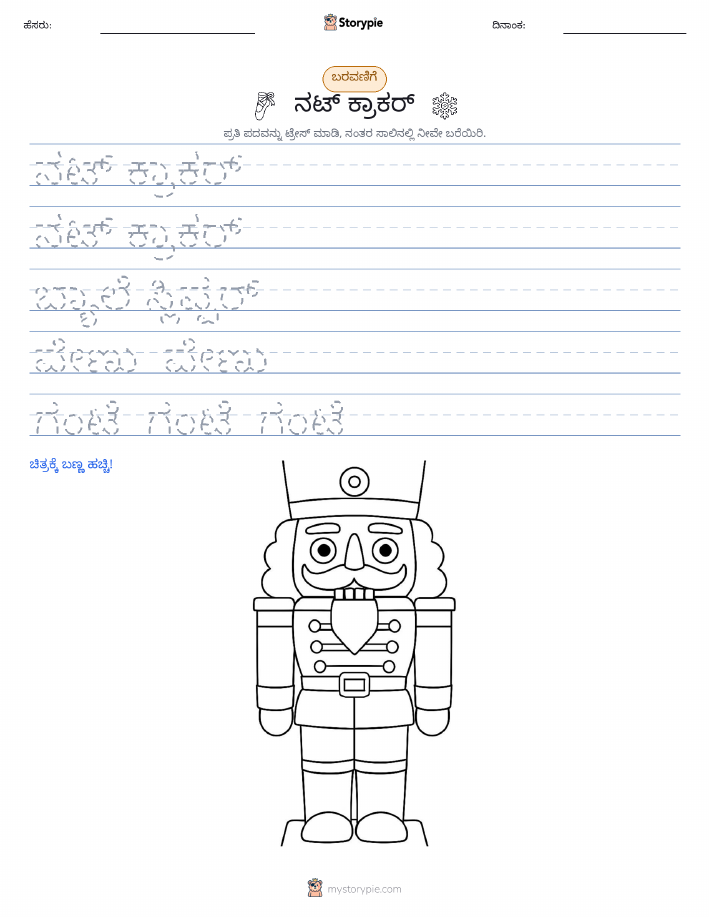 ಹೆಸರು: Storypie ದಿನಾಂಕ:
ಬರವಣಿಗೆ
ನಟ್ ಕ್ರಾಕರ್
ಪ್ರತಿ ಪದವನ್ನು ಟ್ರೇಸ್ ಮಾಡಿ, ನಂತರ ಸಾಲಿನಲ್ಲಿ ನೀವೇ ಬರೆಯಿರಿ.
ನಟ್ ಕ್ರಾಕರ್
ನಟ್ ಕ್ರಾಕರ್
ಬ್ಯಾಲೆ ಸ್ಲಿಪ್ಪರ್
ಗಂಟೆ ಗಂಟೆ ಗಂಟೆ
ಚಿತ್ರಕ್ಕೆ ಬಣ್ಣ ಹಚ್ಚಿ!
mystorypie.com